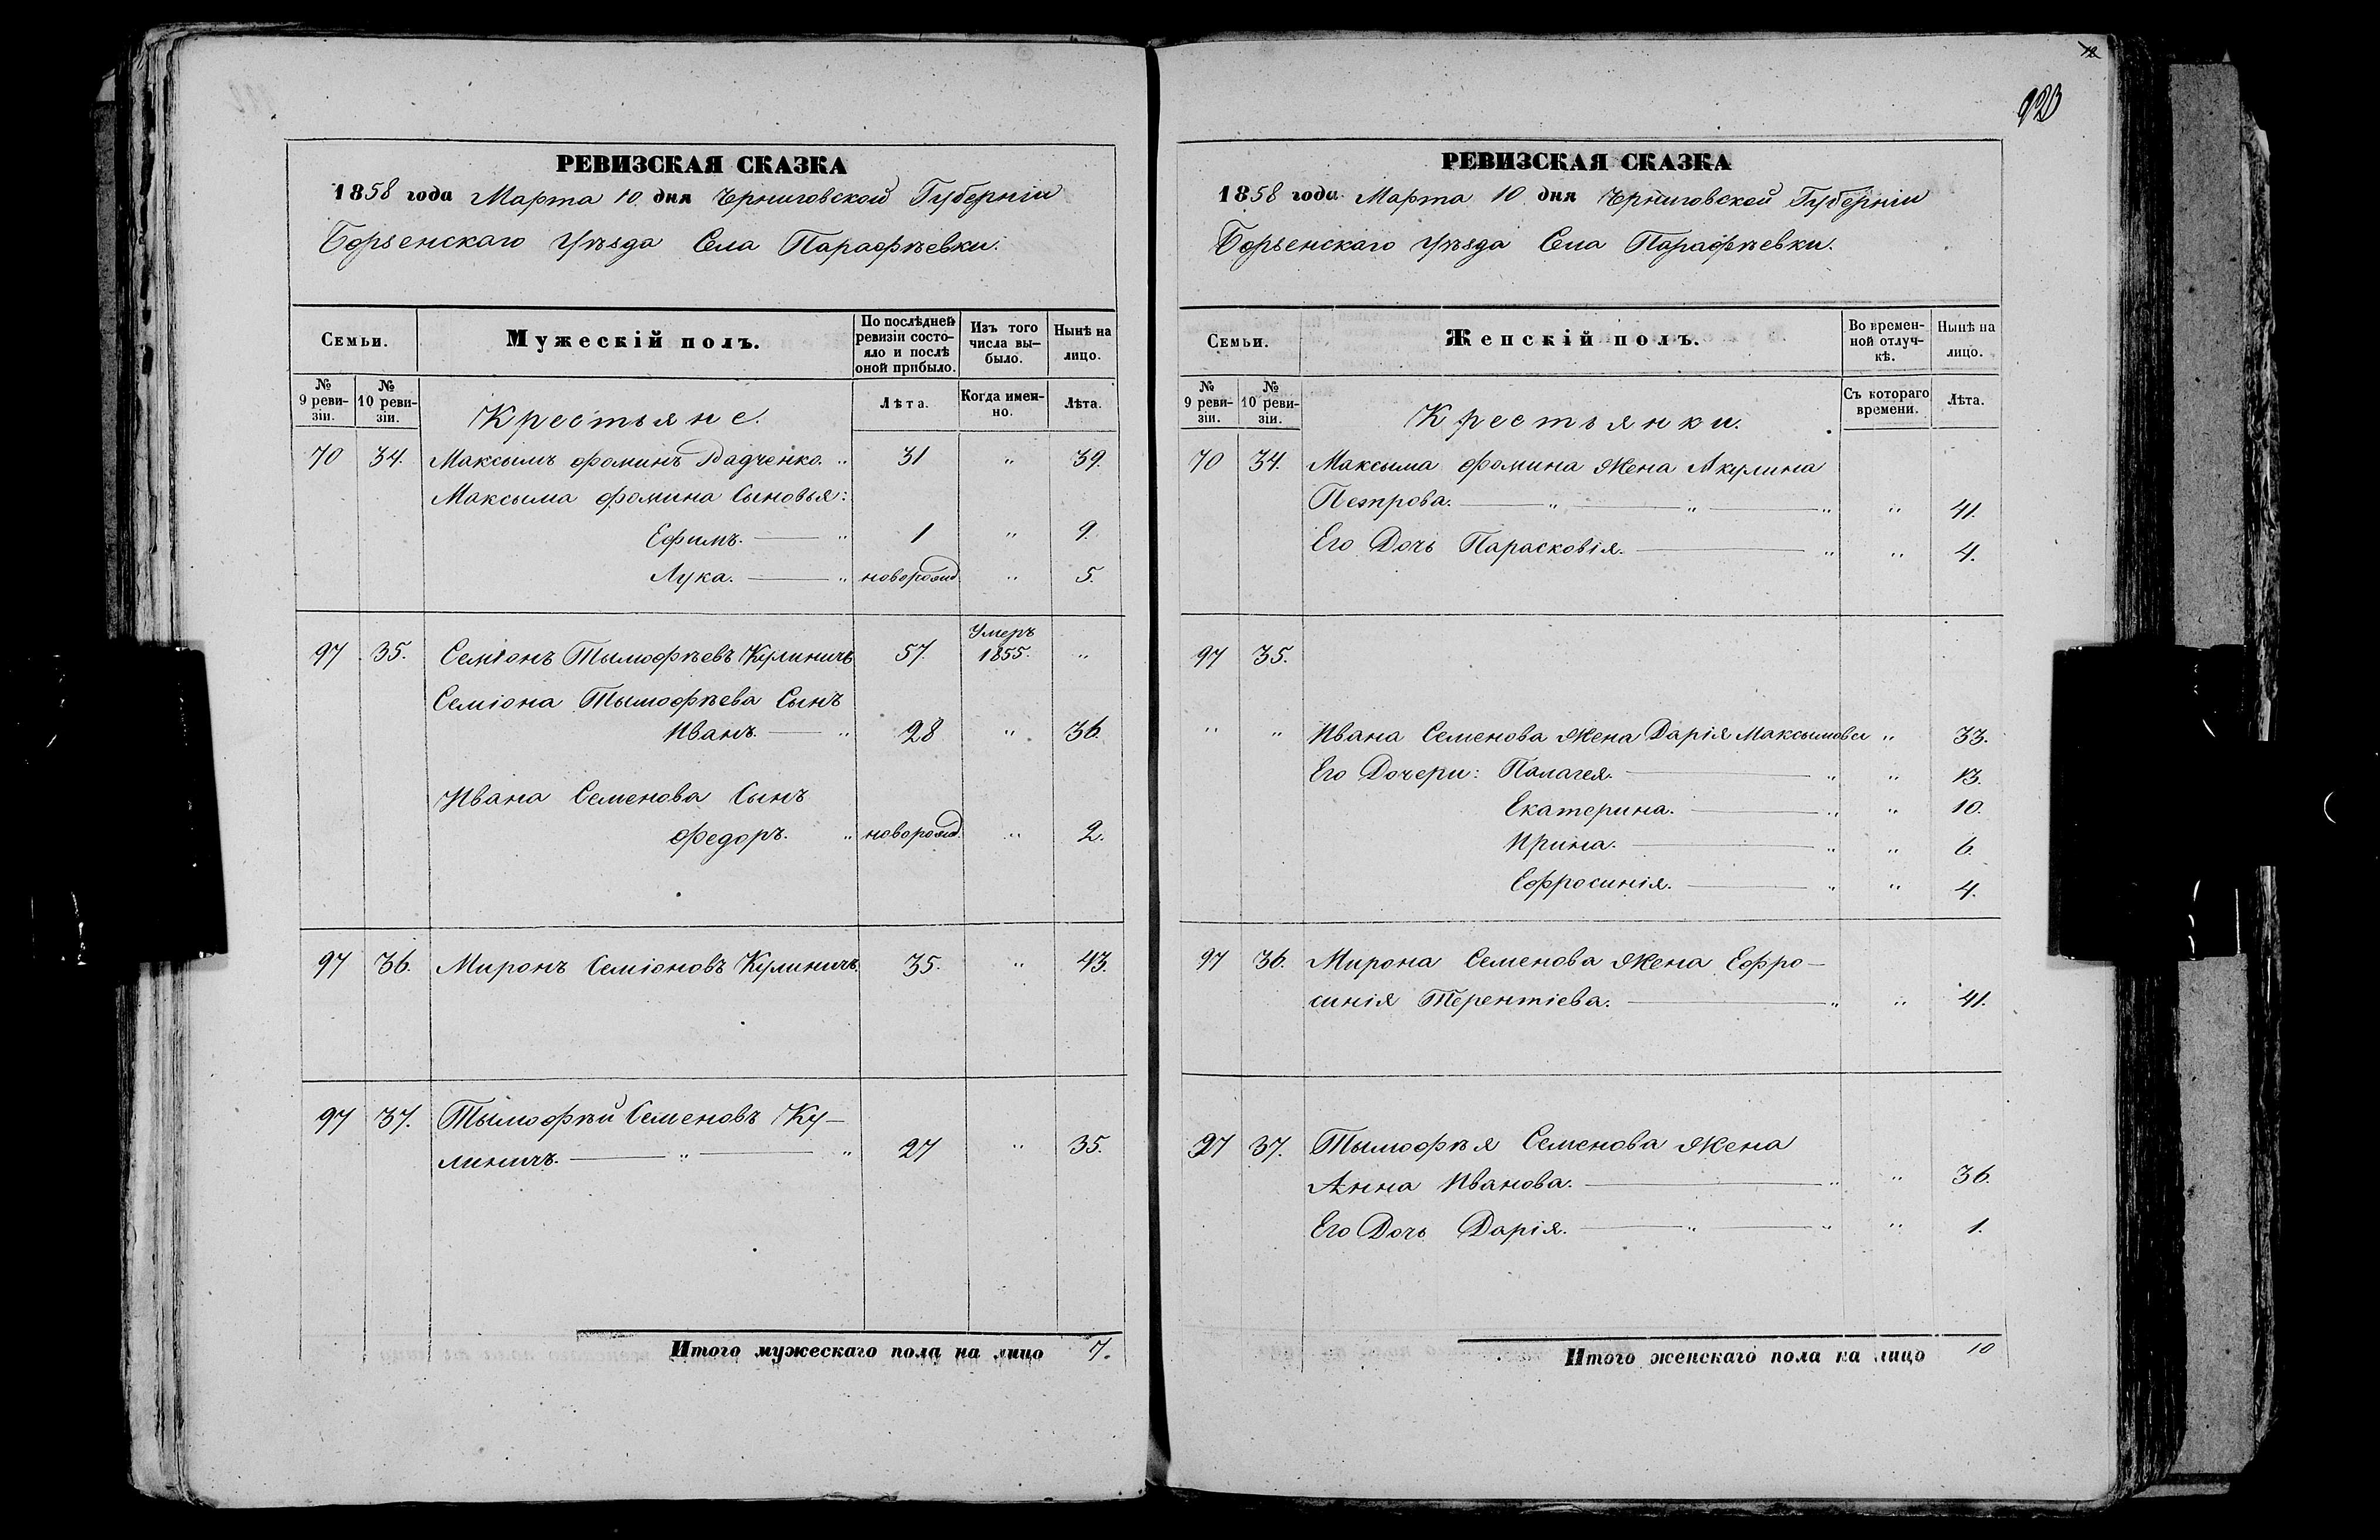 РЕВИЗСКАЯ СКАЗКА
1858 года Марта 10 дня Черниговской Губерніи
Борзенскаго Уѣзда Села Парафѣевки.
Семьи.
Мужескій полъ.
По послѣдней ревизіи состояло и послѣ оной прибыло.
Изъ того числа выбыло.
Нынѣ на лицо.
№ 9 ревизіи.
№ 10 ревизіи.
Крестьяне.
Лѣта.
Когда именно.
Лѣта.
70 34. Максымъ Фоминъ Радченко. " 31 " 39.
Максыма Фомина Сыновья:
Ефимъ. — " 1 " 9.
Лука. — " новорожд. " 5.
97 35. Семіонъ Тымофѣевъ Кулиничъ 57. Умеръ 1855. "
Семіона Тымофѣева Сынъ
Иванъ. — " 28 " 36.
Ивана Семенова Сынъ
Федоръ. " новорожд. " 2.
97 36. Миронъ Семіоновъ Кулиничъ. 35. " 43.
97 37. Тымофѣй Семеновъ Ку-
линичъ. — " — " 27 " 35.
Итого мужескаго пола на лицо 7.
12
РЕВИЗСКАЯ СКАЗКА
1858 года Марта 10 дня Черниговской Губерніи
Борзенскаго Уѣзда Села Парафѣевки.
Семьи.
Женскій полъ.
Во временной отлучкѣ.
Нынѣ на лицо.
№ 9 ревизіи.
№ 10 ревизіи.
Крестьянки.
Съ котораго времени.
Лѣта.
70 34. Максыма Фомина Жена Акулина
Петрова. — " — " — " " 41.
Его Дочь Парасковія. — " " 4.
97 35.
" " Ивана Семенова Жена Дарія Максымова " 33.
Его Дочери: Палагея. — " " 13.
Екатерина. — " " 10.
Ирина. — " " 6.
Ефросинія. — " " 4.
97 36. Мирона Семенова Жена Ефро-
синія Терентіева. — " " 41.
97 37. Тымофѣя Семенова Жена
Анна Иванова. — " " 36.
Его Дочь Дарія. — " — " " 1.
Итого женскаго пола на лицо 10